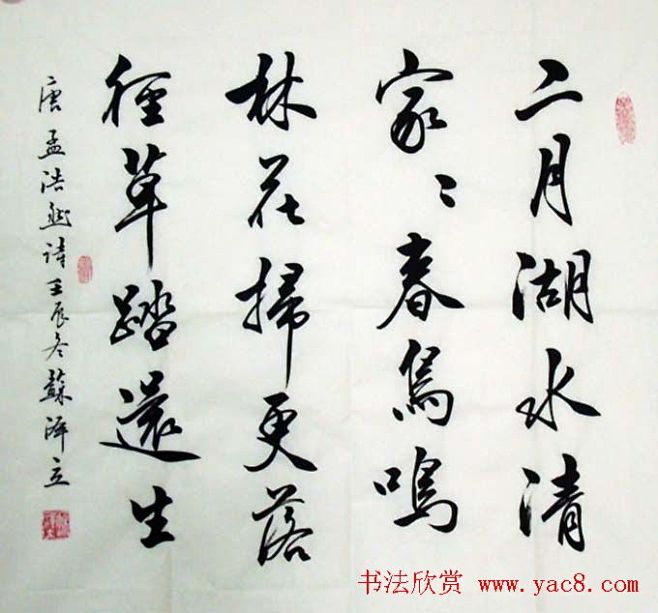 二月湖水清
家々春鳥鳴
林花掃更落
徑草踏還生
唐孟浩然詩壬辰冬蘇澤立
书法欣赏 www.yac8.com